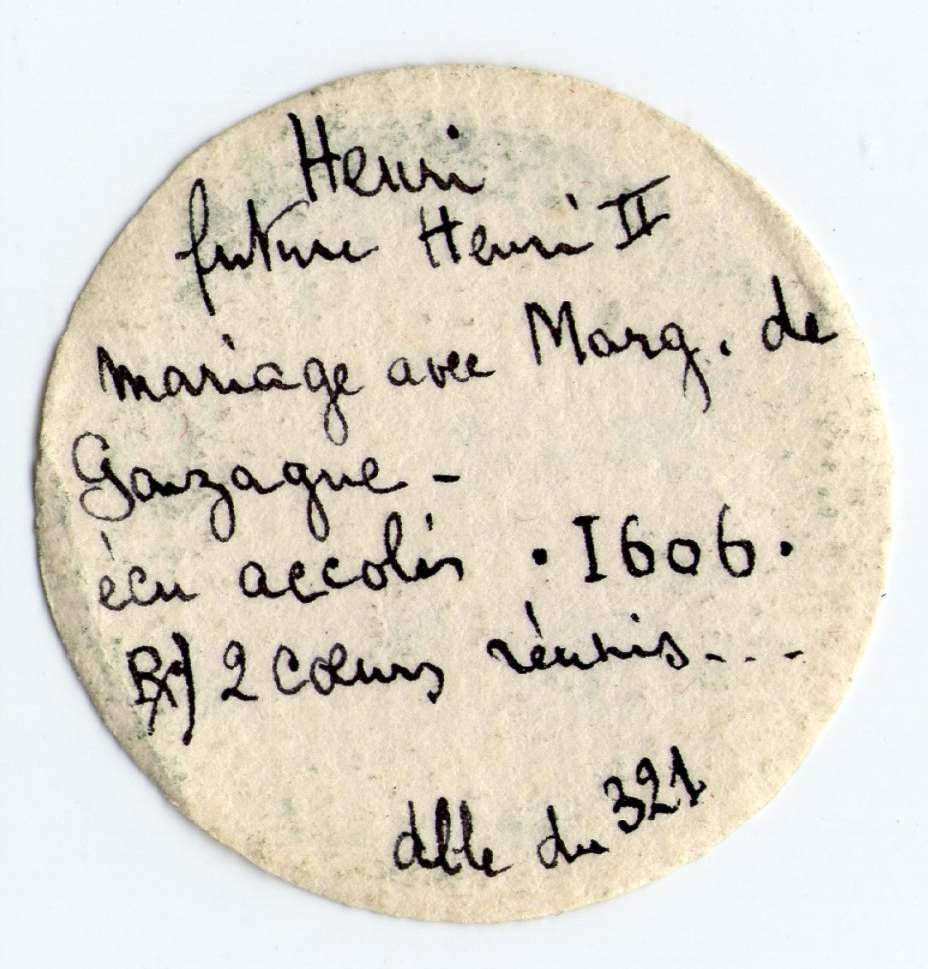 Henri
future Henri II
mariage avec Marg. de
Gonzague -
écu accolés • I606 •
R/ 2 cœurs réunis - - -
dble du 321